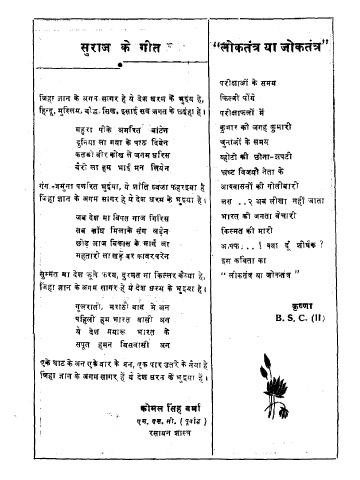 सुराज के गीत
जिहा ज्ञान के अगम सागर हे ये देश धरम के भुइया हे,
हिन्दू, मुस्लिम, बौद्ध, सिख, इसाई सब जगत के छईहा हे।
महुरा पीके अमरित बांटेन
दुनिया ला गया के पाठ दियेन
कतको बीर कोख ले जनम धरिस
बैरी ला हम भाई मन लियेन
गंग-जमुना बोहरित भुइया, ये शांति ध्वजा फहरइया हे
जिहा ज्ञान के अगम सागर हे ये देश धरम के भुइया हे।
जब देश मा बिपत गाज गिरिस
सब खाँध मिलाके संग लड़ेन
छोड़ आज बिकास के मार्ग ला
महतारी ला खड़े
सुम्मत मा देश फूले फरय, दुरमत मा
जिहा ज्ञान के अगम सागर हे ये देश धरम के भुइया हे।
गुजराती, मराठी बाद मे अन
पहिली हम भारत वासी अन
ये देश हमारू भारत के
सपूत हमन बिसवासी अन
एके घाट के अन एके धार के अन, एक पार उतरे के नैया हे
जिहा ज्ञान के अगम सागर हे ये देश धरम के भुइया हे।
कोमल सिंह वर्मा
एम. एस. सी. (पूर्वार्द्ध)
रसायन शास्त्र
"लोकतंत्र या जोकतंत्र"
परीक्षाओं के समय
किसी पॉचे
परीक्षाफलों में
कुमार की जगह कुमारी
चुनाओं के समय
व्होटों की छीना-झपटी
भ्रष्ट विजयी नेता के
आश्वासनों की गोलीबारी
बस ..२ अब लीखा नहीं जाता
भारत की जनता बेचारी
किस्मत की मारी
अ.फफ...! क्या दूँ शीर्षक?
इस कविता का
"लोकतंत्र या जोकतंत्र"
कृष्णा
B. S. C. (II)